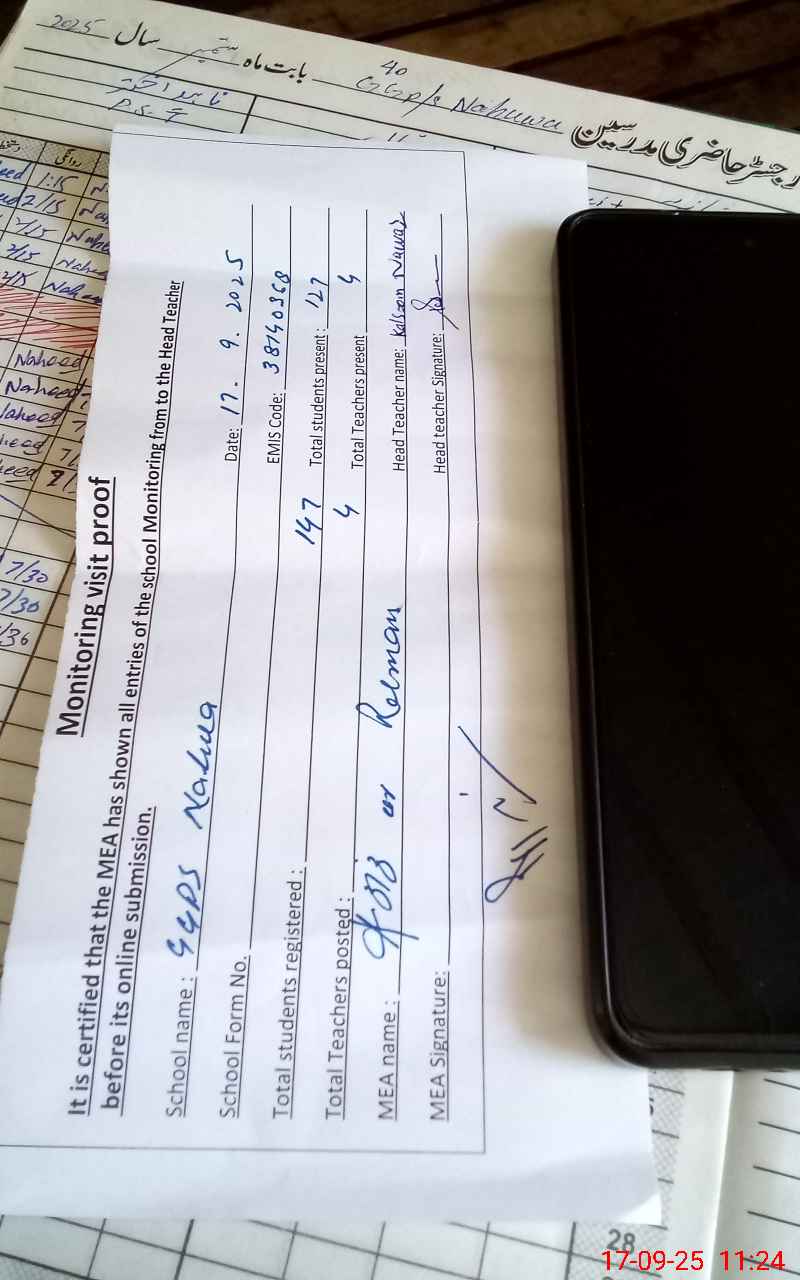 رجسٹر حاضری مدرسین GGPS Nahuwa 40 بابت ماہ ستمبر سال 2025
ناہید اختر
P.S.T
روانگی
1:15
2/15
2/15
2/15
Naheed
Naheed
7/30
7/30
Monitoring visit proof
It is certified that the MEA has shown all entries of the school Monitoring from to the Head Teacher
before its online submission.
School name : GGPS Nahua
Date: 17. 9. 2025
School Form No.
EMIS Code: 38140368
Total students registered : 147
Total students present : 127
Total Teachers posted : 4
Total Teachers present 4
MEA name : ur Rehman
Head Teacher name: Kalsoom Nawaz
MEA Signature:
Head teacher Signature:
28
17-09-25 11:24